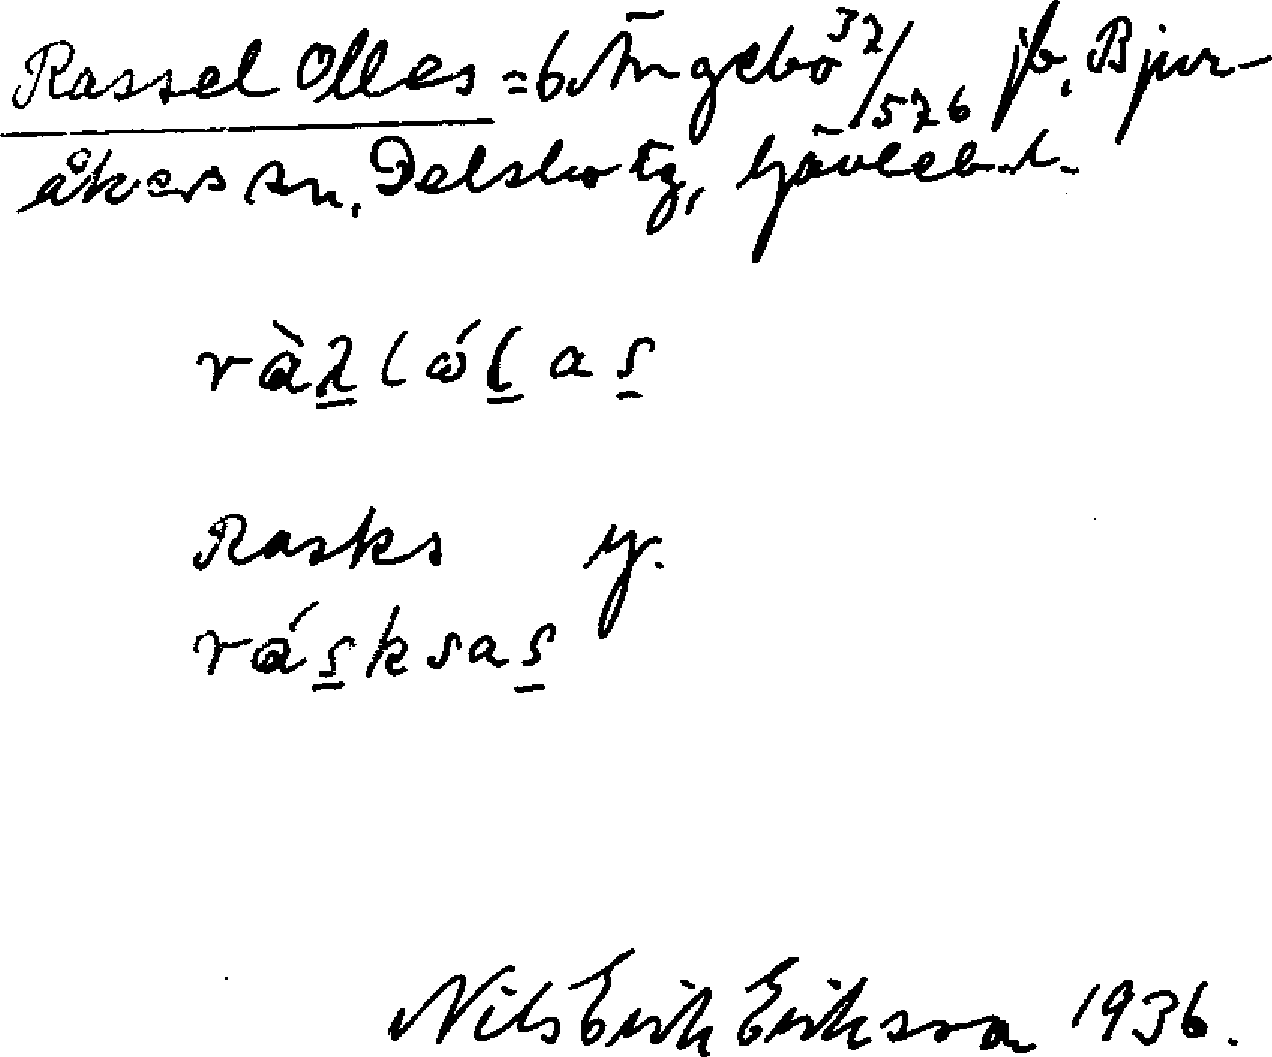 Rassel Olles = 6 Ängebo 32/576 jb. Bjur-
åkers sn, Delsbo tg, Gävleb. l.
ràλlólas
Rasks y.
rásksas
Nils Erik Erikson 1936.